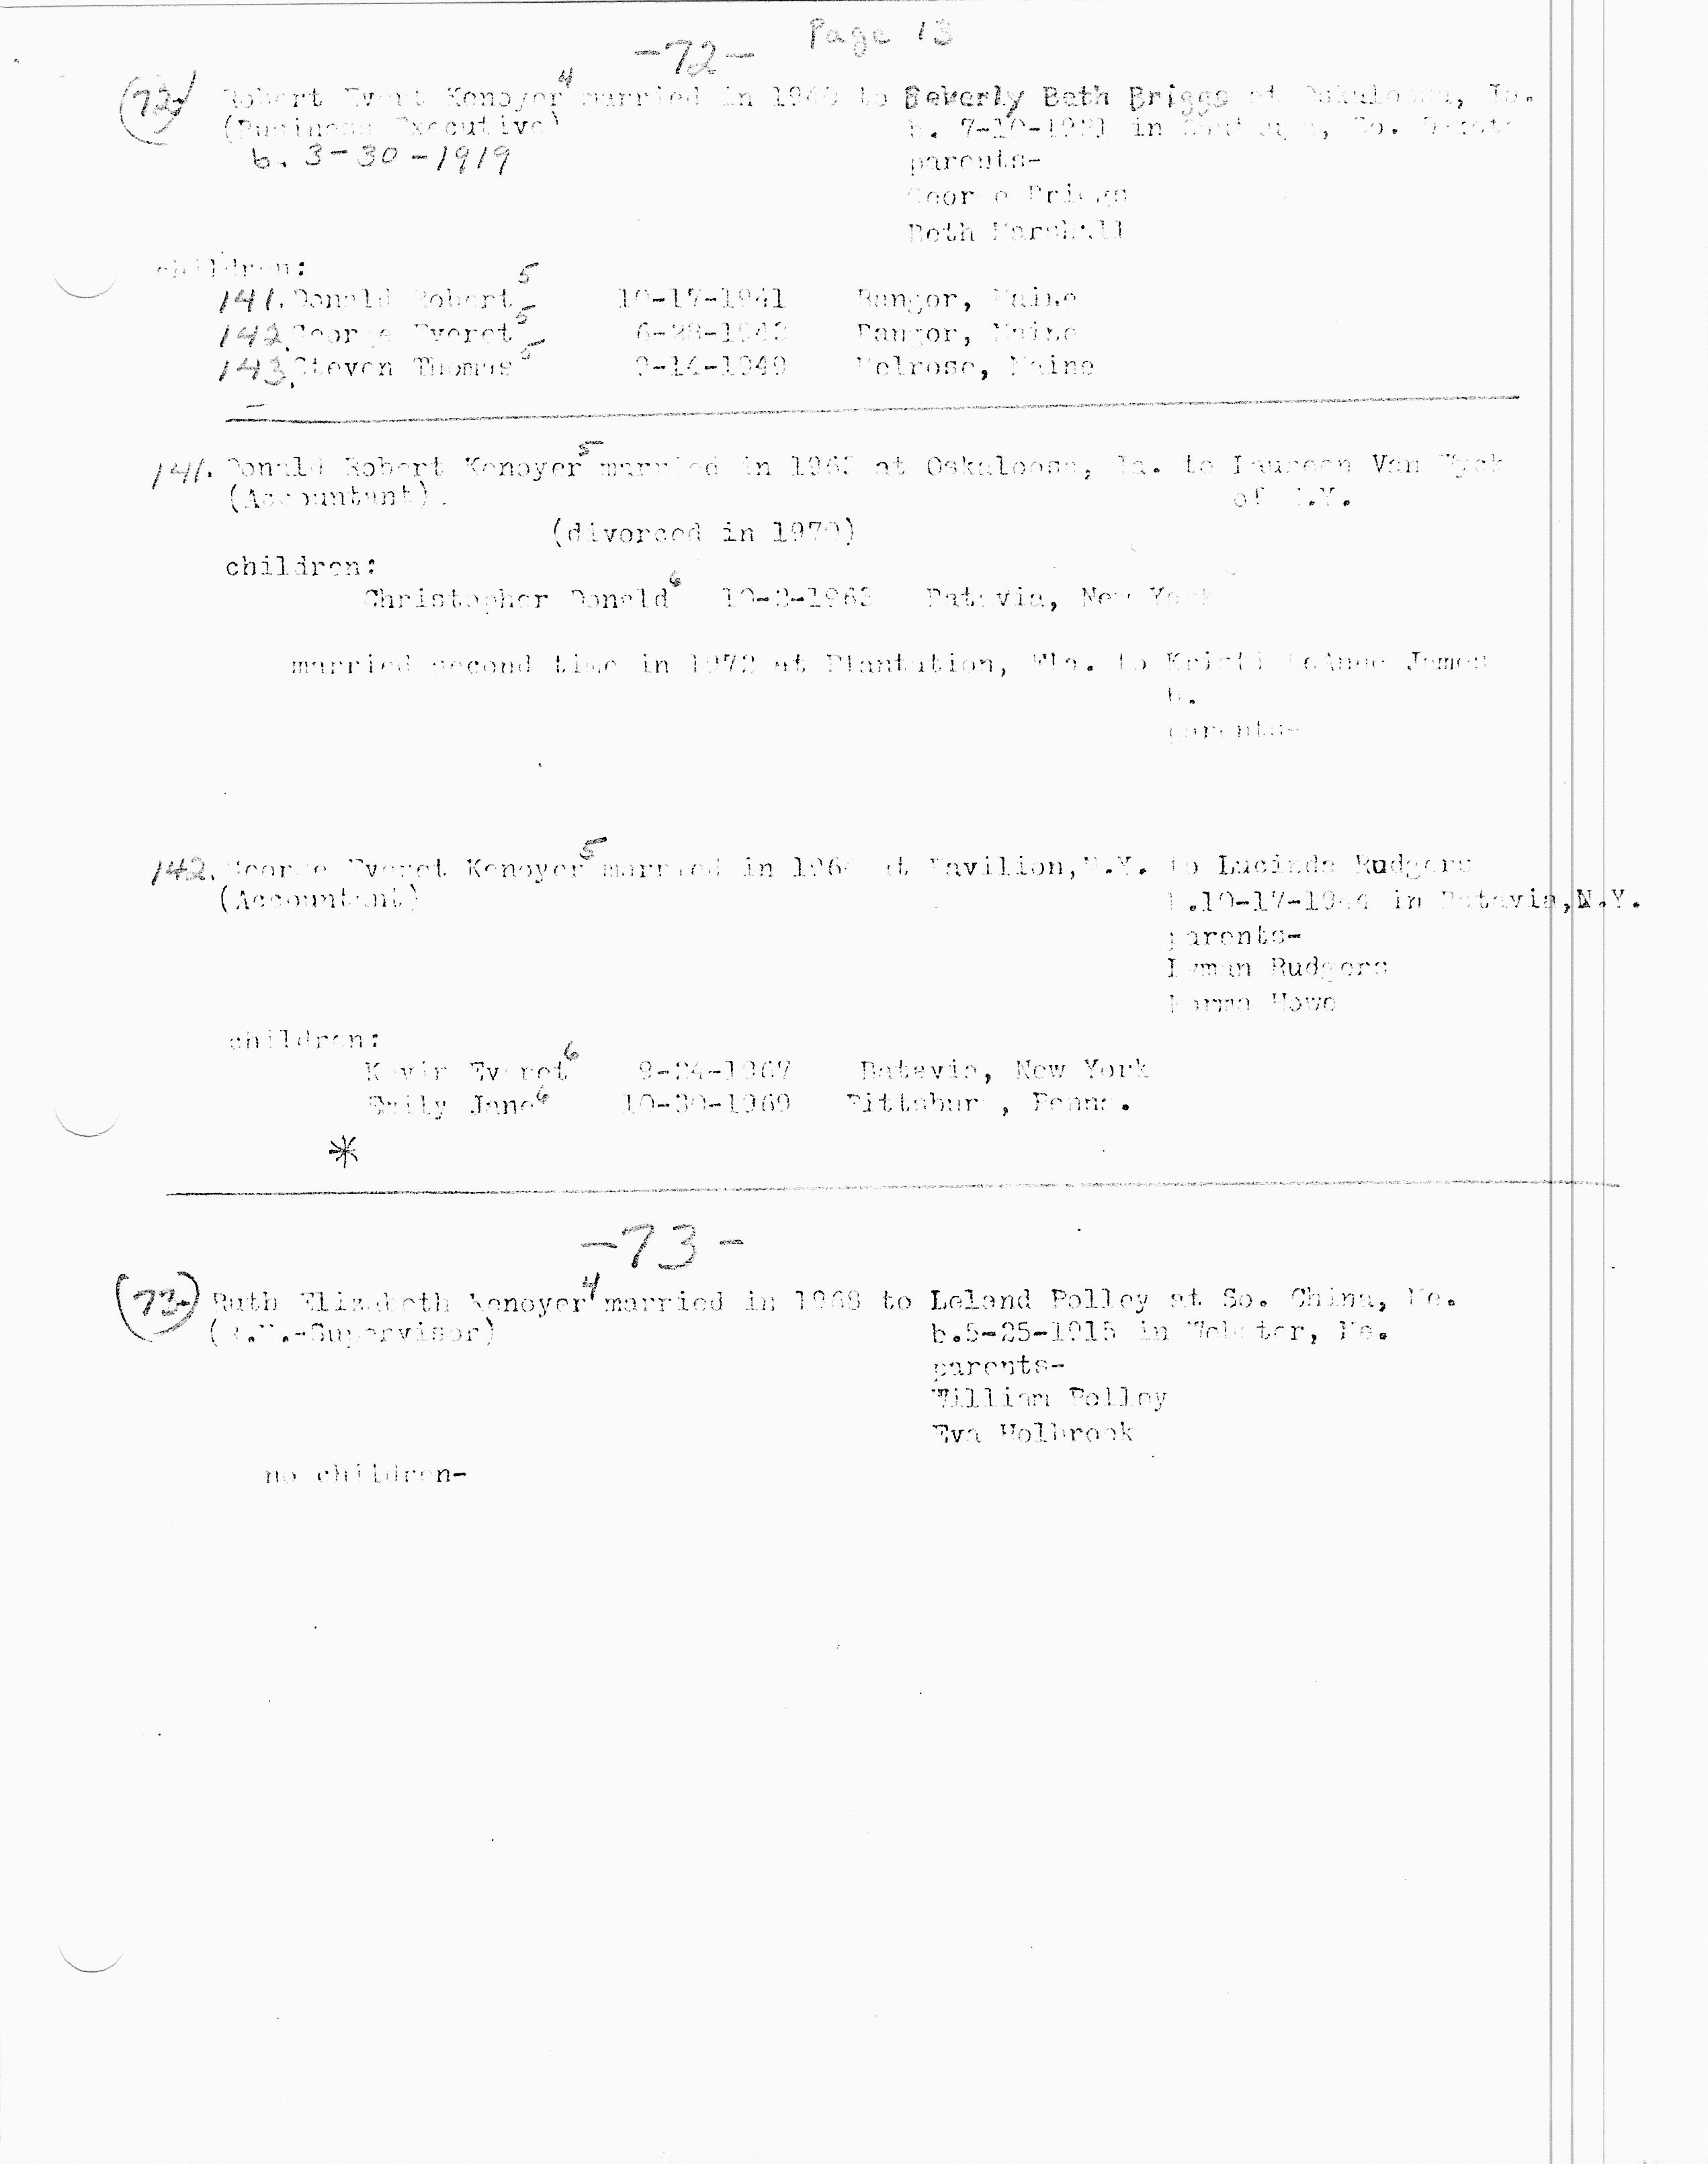 Page 13
-72-
(72) Robert Evert Kenoyer4 married in 1940 to Beverly Beth Briggs at Oskaloosa, Io.
(Business Executive) b. 7-10-1921 in So. Dakota
b. 3-30-1919 parents-
George Briggs
Beth Marshall
children:
141. Donald Robert5 10-17-1941 Bangor, Maine
142. George Everet5 Bangor, Maine
143. Steven Thomas5 9-14-1949 Melrose, Maine
141. Donald Robert Kenoyer5 married in at Oskaloosa, Ia. to Laureen Van Wyck
(Accountant). of N.Y.
(divorced in 1970)
children:
Christopher Donald6 10-2-1963 Batavia, New York
married second time in 1972 at Plantation, Fla. to Kristi LeAnne James
b.
parents-
142. George Everet Kenoyer5 married in at Pavilion, N.Y. to Lucinda Rudgers
(Accountant) b.10-17-1944 in Batavia, N.Y.
parents-
Lyman Rudgers
Norma Howe
children:
Kevin Everet6 9-24-1967 Batavia, New York
Emily Jane6 10-30-1969 Pittsburg, Penna.
*
-73-
(73.) Ruth Elizabeth Kenoyer4 married in 1968 to Leland Polley at So. China, Me.
(R.N.-Supervisor) b.5-25-1915 in Webster, Me.
parents-
William Polley
Eva Holbrook
no children-